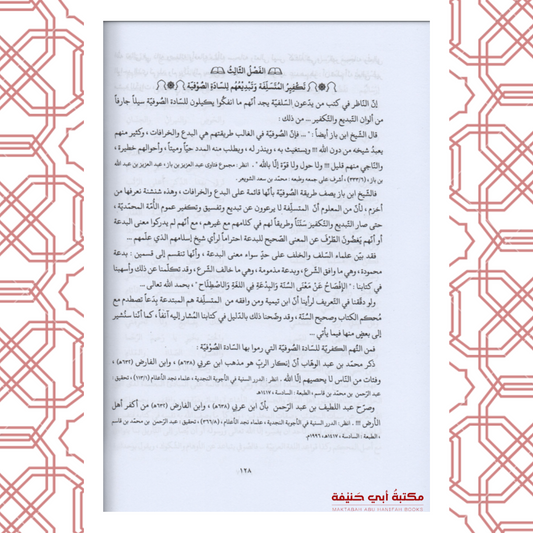 الفَصْلُ الثَّالِثُ
تَكْفِيْرُ المُتَسَلِّفَة وَتَبْدِيْعُهُم لِلسَّادَةِ الصُّوْفِيَّة
إنَّ النَّاظر في كتب من يدَّعون السَّلفيَّة يجد أنَّهم ما انفكُّوا يكيلون للسَّادة الصُّوفيَّة سيلاً جارفاً
من ألوان التَّبديع والتَّكفير ... من ذلك :
قال الشَّيخ ابن باز أيضاً : " ... فإنَّ الصُّوفيَّة في الغالب طريقتهم هي البدع والخرافات ، وكثير منهم
يعبدُ شيخه من دون الله !!! ويستغيث به ، وينذر له ، ويطلب منه المدد حيَّاً وميتاً ، وأحوالهم خطيرة ،
والنَّاجي منهم قليل !!! ولا حول ولا قوَّة إلَّا بالله " . انظر : مجموع فتاوى عبد العزيز بن باز ، عبد العزيز بن عبد الله
بن باز ، أشرف على جمعه وطبعه : محمَّد بن سعد الشويعر .
فالشَّيخ ابن باز يصف طريقة الصُّوفيَّة بأنَّها قائمة على البدع والخرافات ، وهذه شنشنة نعرفها من
أخزم ، لأنَّ من المعلوم أنَّ المتسلِّفة لا يرعوون عن تبديع وتفسيق وتكفير عموم الأمَّة المحمَّديَّة ،
حتى صار التَّبديع والتَّكفير سَنَناً وطريقاً لهم في كلامهم مع غيرهم ، مع أنَّهم لم يدركوا معنى البدعة
أو أنَّهم يَغضُّونَ الطَّرْفَ عن المعنى الصَّحيح للبدعة احتراماً لرأي شيخ إسلامهم الذي علَّمهم ...
فقد بيَّن علماء السَّلف والخلف على حدٍّ سواء معنى البدعة ، وأنَّها تنقسم إلى قسمين : بدعة
محمودة ، وهي ما وافق الشَّرع ، وبدعة مذمومة ، وهي ما خالف الشَّرع ، وقد تكلَّمنا عن ذلك وأسهبنا
في كتابنا : " الإِفْصَاحُ عَنْ مَعْنَى السُّنَّة وَالبِدْعَةِ فِي اللغَةِ وَالاصْطِلَاحِ " ، بحمد الله تعالى ...
ولو دقَّقنا في التَّعريف لرأينا أنَّ ابن تيمية ومن وافقه من المتسلِّفة هم المبتدعة بِدَعاً تصطدم مع
مُحكم الكتاب وصحيح السُّنَّة ، وقد وضَّحنا ذلك بالدَّليل في كتابنا المُشار إليه آنفاً ، كما أنَّنا سنُشير
إلى بعضٍ منها فيما يأتي ...
فمن التُّهم الكفريَّة للسَّادة الصُّوفيَّة التي رموا بها السَّادة الصُّوفيَّة :
ذكر محمَّد بن عبد الوهَّاب أنَّ إنكار الربِّ هو مذهب ابن عربي (٦٣٨هـ) ، وابن الفارض (٦٣٢هـ) ،
وفئات من النَّاس لا يحصيهم إلَّا الله . انظر : الدرر السنية في الأجوبة النجدية ، علماء نجد الأعلام ، تحقيق :
عبد الرَّحمن بن محمَّد بن قاسم ، الطبعة : السادسة ، ١٤١٧هـ .
وصرَّح عبد اللطيف بن عبد الرَّحمن بأنَّ ابن عربي (٦٣٨هـ) ، وابن الفارض (٦٣٢هـ) من أكفر أهل
الأرض !!! . انظر : الدرر السنية في الأجوبة النجدية ، علماء نجد الأعلام (٣٦٦/٨) ، تحقيق : عبد الرَّحمن بن محمَّد بن قاسم
، الطبعة : السادسة ، ١٤١٧هـ ، ١٩٩٦م .
١٢٨
مكتبة أبي حنيفة
MAKTABAH ABU HANIFAH BOOKS